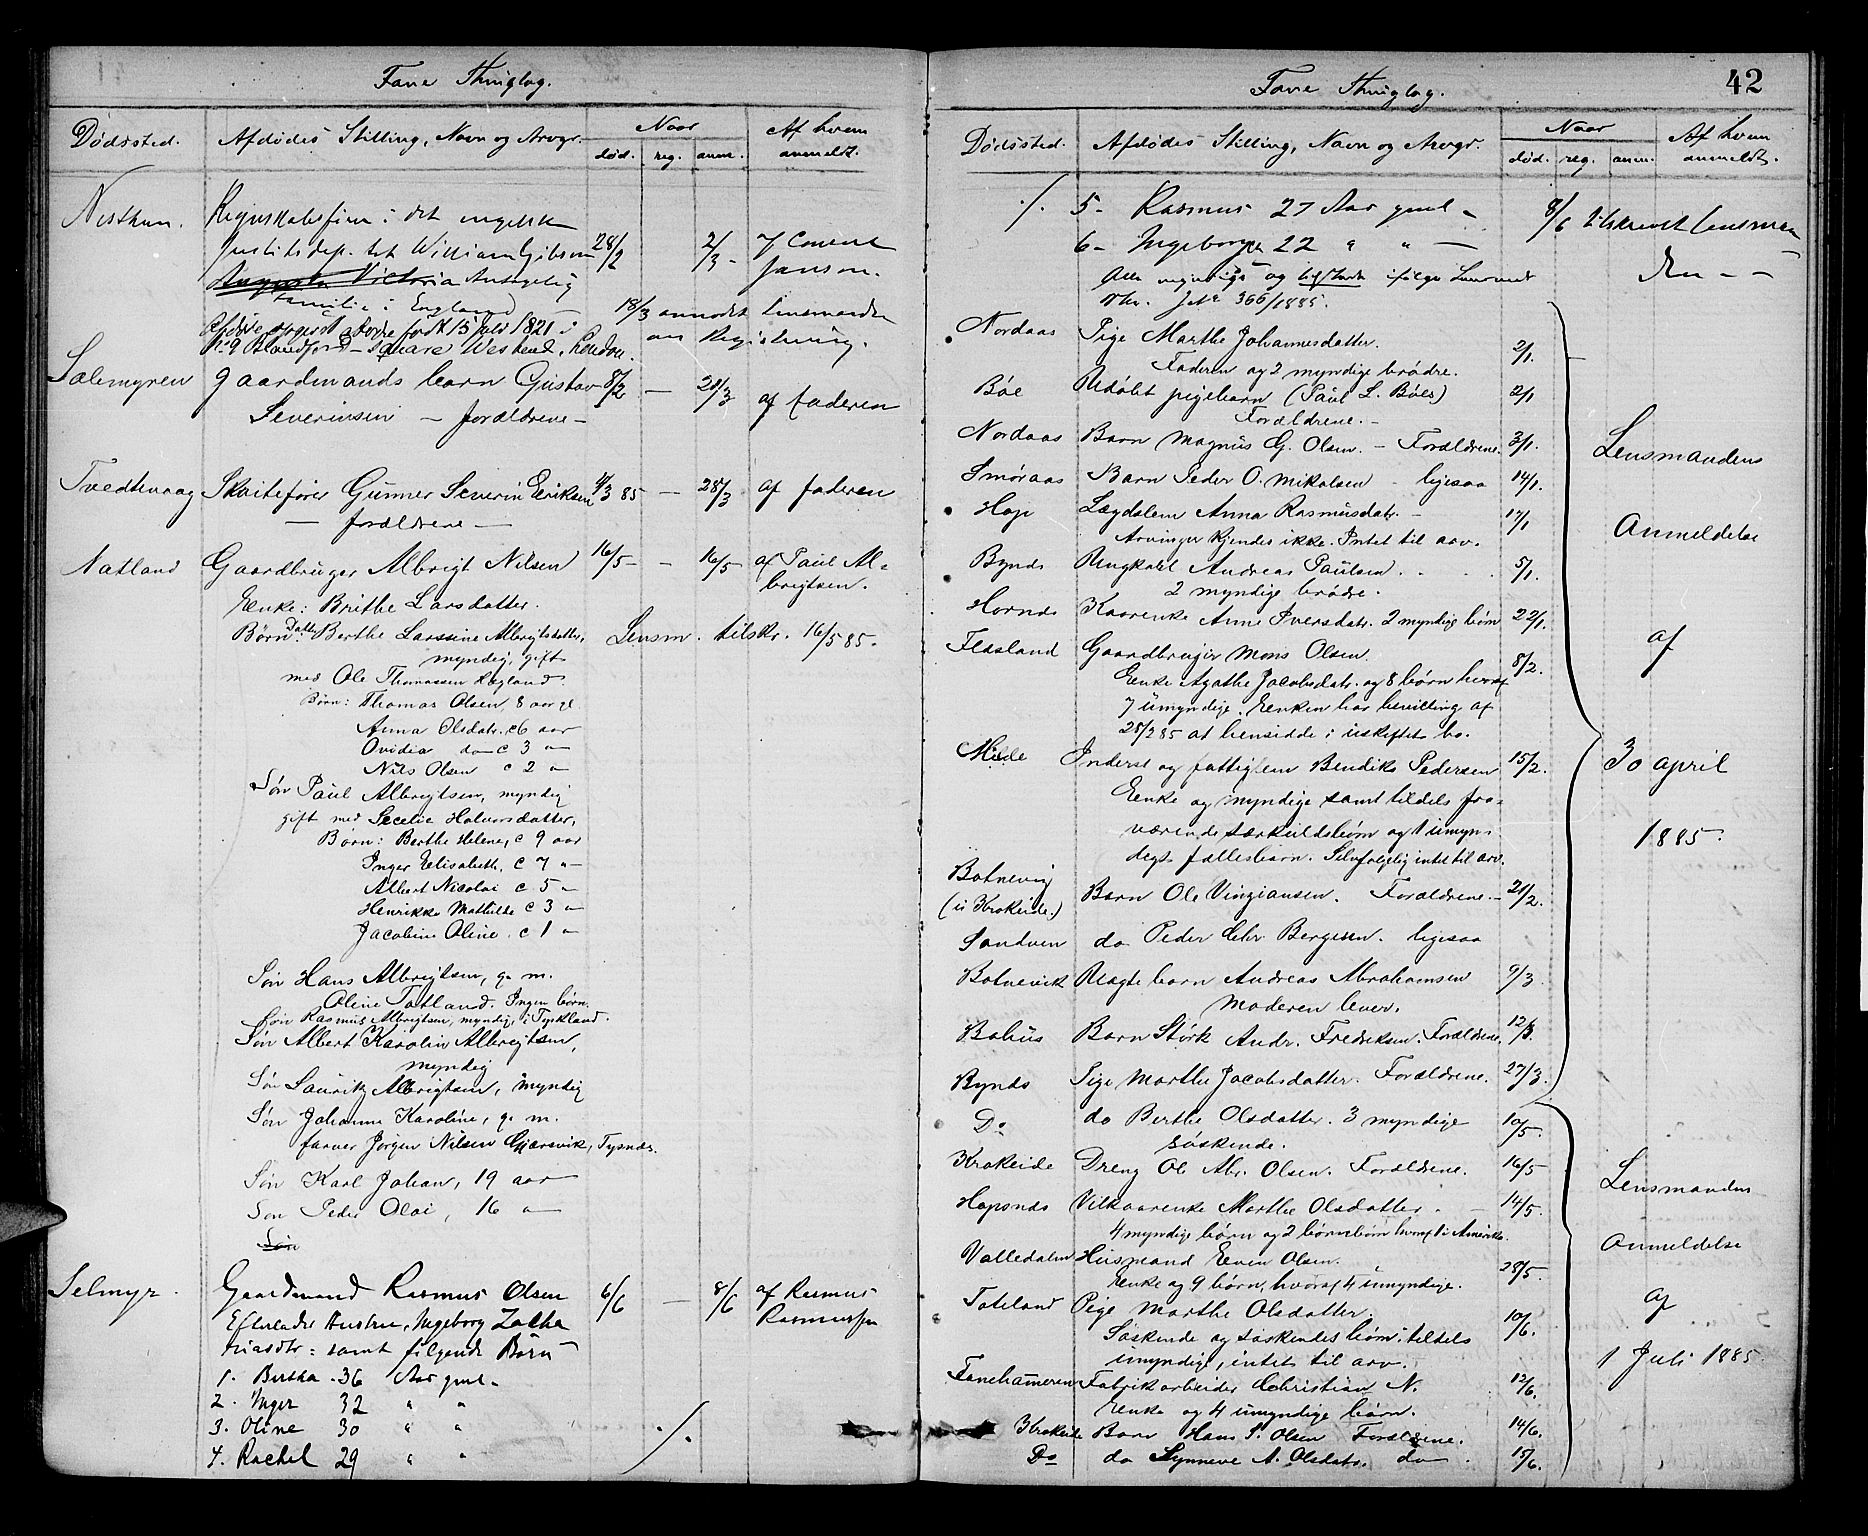 Fane Thinglag.
Dødssted. Afdødes Stilling, Navn og Arvgr. Naar Af hvem
død. reg. anm. anmeldt.
Nestthun. Regnskabsfører i det engelske
Justitsdep.tet William Gibson 28/2 2/3 -
Augusta Victoria Antagelig Janson.
familie i England
18/3 anmodet lensmanden
født 15 juli 1821 i om Registrering.
No 9 Blandford-square Westend, London.
Sælemyren Gaardmands barn Gustav 8/2 — 28/3 af faderen
Severinsen — forældrene —
Tvedtevaag Skoitefører Gunner Severin Eeriksen 4/3 85 — 28/3 af faderen
— forældrene —
Natland Gaardbruger Albrigt Nilsen 16/5 — 16/5 af Paul Al=
brigtsen.
Eenke: Brithe Larsdatter.
Børn: Datter Berthe Larssine Albrigtsdatter, Lensm. tilskr. 16/5 85.
myndig, gift
med Ole Thomassen Hogland
Børn: Thomas Olsen 8 aar gl.
Anna Olsdatr. c 6 aar
Ovidia do c 3 "
Nils Olsen c 2 "
Søn Paul Albrigtsen, myndig
gift med Secelie Halvorsdatter,
Børn: Berthe Helene, c 9 aar
Inger Eelisabeth, c 7 "
Albert Nicolai c 5 "
Henrikke Mathilde c 3 "
Jacobine Oline. c 1 "
Søn Hans Albrigtsen, g. m.
Oline Totland. Ingen børn.
Søn Rasmus Albrigtsen, myndig, i Tyskland.
Søn Albert Karolin Albrigtsen,
myndig
Søn Lauritz Albrigtsen, myndig
Søn Johanne Karoline, g. m.
farver Jørgen Nilsen Gjærsvik, Tysnæs.
Søn Karl Johan, 19 aar
Søn Peder Olai, 16 "
Søn
Selmyr. Gaardmand Rasmus Olsen 6/6 — 8/6 af Rasmus
Efterlader Hustru, Ingeborg Zacha Rasmussen
riasdtr: samt følgende Børn
1. Bertha . 36 Aar gml.
2. Inger 32 " "
3. Oline 30 " "
4. Rachel 29 " " ./.
Fane Thinglag. 42
Dødssted. Afdødes Stilling, Navn og Arvgr. Naar Af hvem
død. reg. anm. anmeldt.
./. 5- Rasmus 27 Aar gml - 8/6 tilskrevet lensman
6- Ingeborg 22 " " — den — —
Alle myndige og ifølge Lensmand
Jr No 366/1885.
Nordaas Pige Marthe Johannesdatter. 2/1.
Faderen og 2 myndige brødre.
Bøe Udøbt pigebarn (Paul L. Bøes) 2/1
Forældrene. -
Nordaas Barn Magnus G. Olsen. - Forældrene. 3/1. Lensmandens
Smøraas Barn Peder O. Mikalsen - ligesaa 14/1.
Hop Lægdslem Anna Rasmusdatr. - 17/1 Anmeldelse
Arvinger kjendes ikke. Intet til arv.
Bynds Ungkarl Andreas Paulsen. 5/1.
2 myndige brødre.
Hornds Kaarenke Anne Iversdatr. 2 myndige børn 22/1.
Flesland Gaardbruger Mons Olsen. 8/2. af
Eenke Agathe Jacobsdatr. og 8 børn hvoraf
7 umyndige. Eenken har bevilling af
28/2 85 at hensidde i uskiftet bo.
Milde Inderst og fattiglem Bendiks Pedersen 15/2. 30 april
Eenke og myndige samt tildels fra=
værende særkuldsbørn og 1 umyn= 1885.
digt fællesbarn. Selvfølgelig intet til arv.
Botnevig
(u Krokeide.) Barn Ole Vingiansen. Forældrene. - 21/2.
Sandven do Peder Chr Bergesen. ligesaa
Botnevik Uægte barn Andreas Abrahamsen 9/3.
Moderen lever.
Bahus Barn Størk Andr. Fredriksen. Forældrene. 12/3.
Bynds Pige Marthe Jacobsdatter. Forældrene. 27/3.
Do do Berthe Olsdatter. 3 myndige 10/5.
søskende.
Krokeide Dreng Ol. Abr. Olsen. Forældrene. 16/5 Lensmandens
Hopsnds Vilkaarenke Marthe Olsdatter. - 14/5.
4 myndige børn og 2 børnebørn hvoraf 1 i Amerika. anmeldelse
Valledalen Husmand Even Olsen. 28/5.
Eenke og 9 børn, hvoraf 4 umyndige. af
Toteland Pige Marthe Olsdatter. 10/6.
Søskende og søskendes børn tildels
umyndige, intet til arv. 1 Juli 1885
Fanehameren Fabrikarbeider Christian N. 12/6.
Eenke og 4 umyndige børn.
Krokeide Barn Hans S. Olsen Forældrene. 14/6.
Do do Synneve A. Olsdatr. do 15/6.